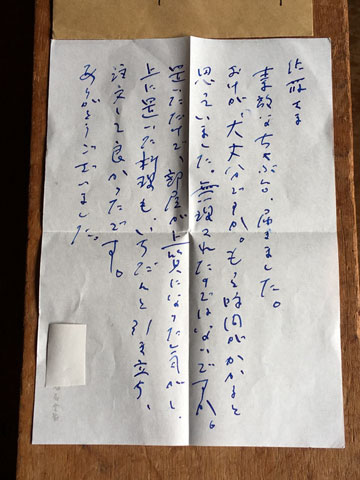 佐藤さま
素敵なちゃぶ台、届きました。
おけが、大丈夫ですか。もっと時間がかかると
思っていました。無理されたのではないですか。
置いただけで、部屋が上質になった気がし、
上に置いた料理もいちだんと引き立ち、
注文して良かったです。
ありがとうございました。